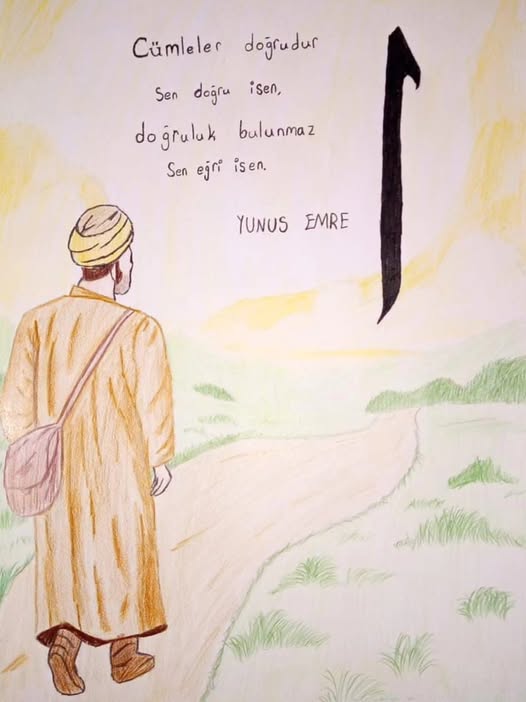 Cümleler doğrudur
Sen doğru isen,
doğruluk bulunmaz
Sen eğri isen.
YUNUS EMRE
ا